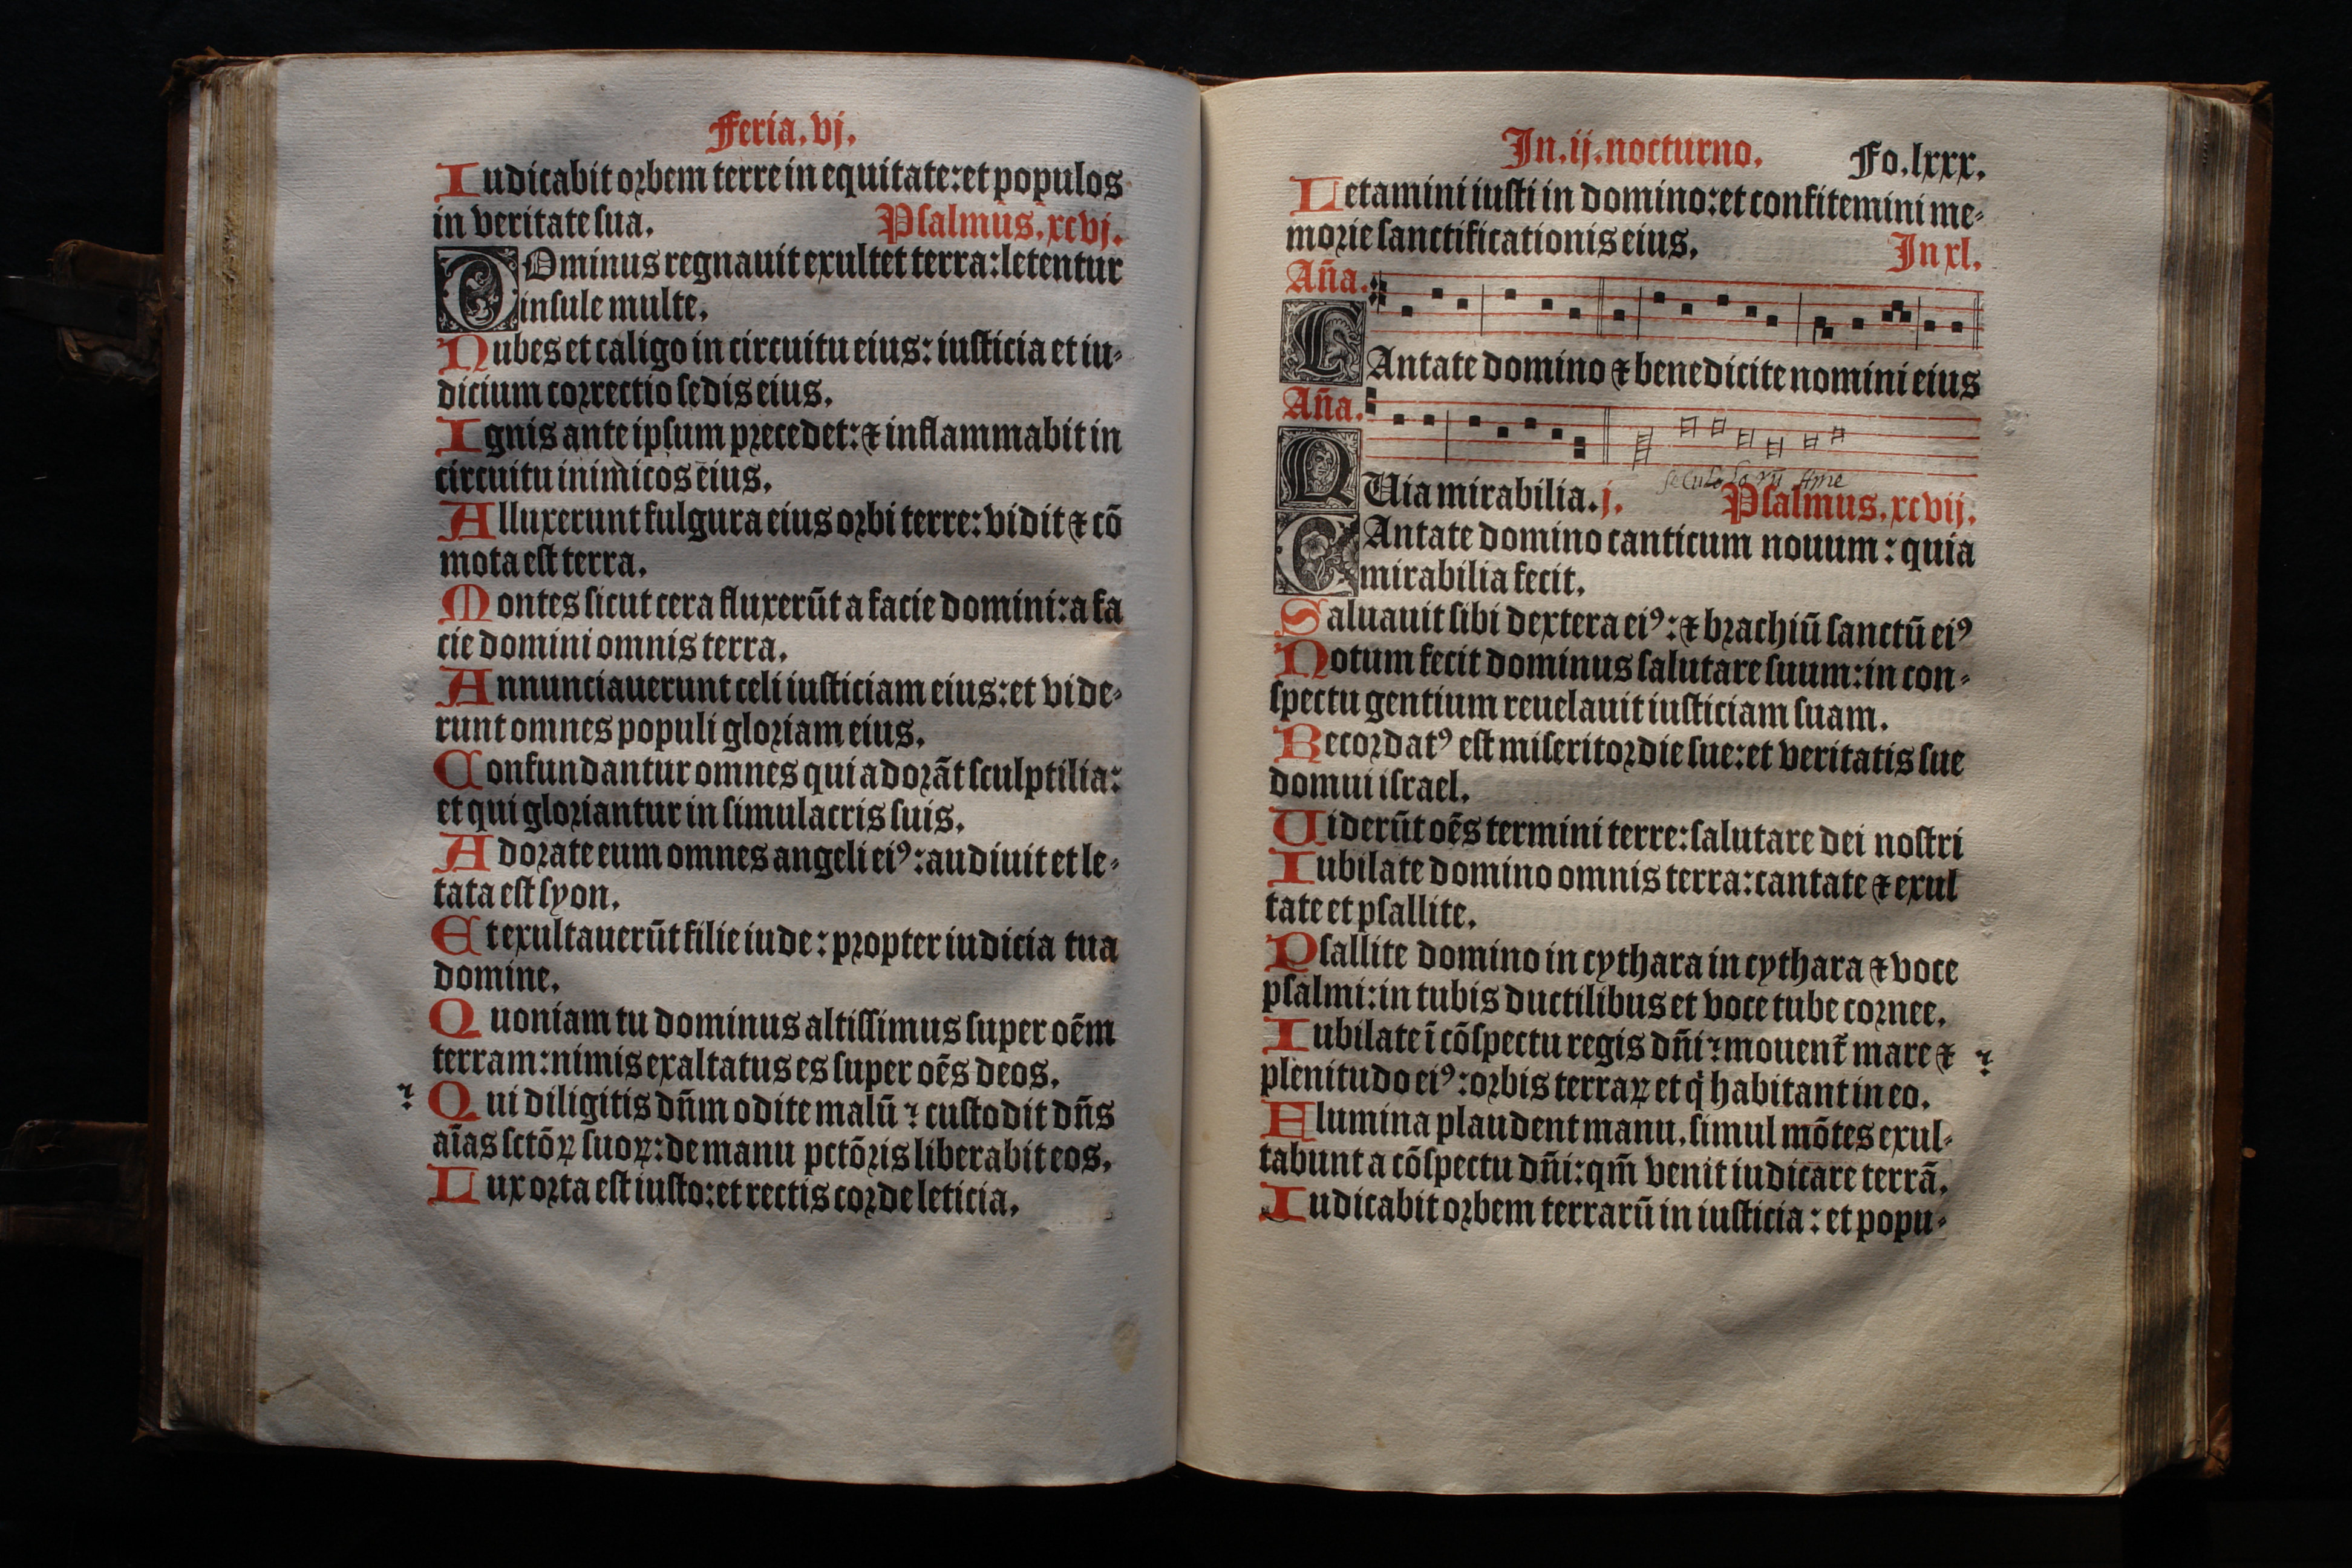 Feria.vj.
Iudicabit orbem terre in equitate: et populos
in veritate sua. Psalmus.xcvj.
DOminus regnauit exultet terra: letentur
insule multe.
Nubes et caligo in circuitu eius: iusticia et iu-
dicium correctio sedis eius.
Ignis ante ipsum precedet: ⁊ inflammabit in
circuitu inimicos eius.
Alluxerunt fulgura eius orbi terre: vidit ⁊ cō
mota est terra.
Montes sicut cera fluxerūt a facie domini: a fa
cie domini omnis terra.
Annunciauerunt celi iusticiam eius: et vide-
runt omnes populi gloriam eius.
Confundantur omnes qui adorāt sculptilia:
et qui gloriantur in simulacris suis.
Adorate eum omnes angeli eiꝰ: audiuit et le-
tata est syon.
Et exultauerūt filie iude: propter iudicia tua
domine.
Quoniam tu dominus altissimus super oēm
terram: nimis exaltatus es super oēs deos.
Qui diligitis dn̄m odite malū: custodit dn̄s
aīas sctōꝝ suoꝝ: de manu pctōris liberabit eos.
Lux orta est iusto: et rectis corde leticia.
In.ij.nocturno. Fo.lxxx.
Letamini iusti in domino: et confitemini me-
morie sanctificationis eius. In xl.
An̄a.
CAntate domino ⁊ benedicite nomini eius
An̄a.
seculoforū Ame
QUia mirabilia.j. Psalmus.xcvij.
CAntate domino canticum nouum: quia
mirabilia fecit.
Saluauit sibi dextera eiꝰ: ⁊ brachiū sanctū eiꝰ
Notum fecit dominus salutare suum: in con-
spectu gentium reuelauit iusticiam suam.
Recordatꝰ est misericordie sue: et veritatis sue
domui israel.
Uiderūt oēs termini terre: salutare dei nostri
Iubilate domino omnis terra: cantate ⁊ exul
tate et psallite.
Psallite domino in cythara in cythara ⁊ voce
psalmi: in tubis ductilibus et voce tube cornee.
Iubilate ī cōspectu regis dn̄i: mouent̄ mare ⁊
plenitudo eiꝰ: orbis terraꝝ et q̇ habitant in eo.
Flumina plaudent manu, simul mōtes exul-
tabunt a cōspectu dn̄i: qm̄ venit iudicare terrā.
Iudicabit orbem terrarū in iusticia: et popu-